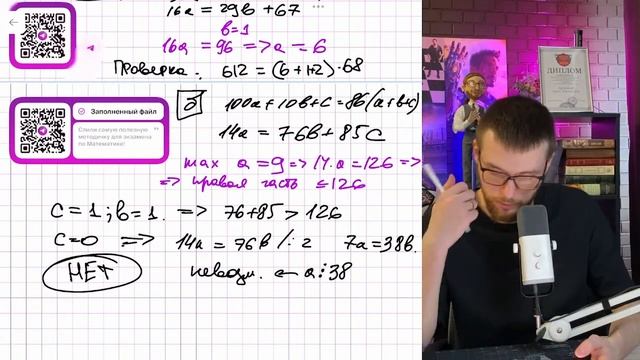 16a = 29b + 67
b=1
16a = 96 => a = 6
Проверка: 612 = (6+1+2)·68
Заполненный файл
Стили самую полезную методичку для экзамена по Математике!
б
100a+10b+c=86(a+b+c)
14a = 76b + 85c
max a=9 => 14·a=126 =>
=> правая часть ≤126
c=1; b=1. => 76+85 > 126
c=0 => 14a = 76b /:2 7a=38b.
НЕТ
невозм. ← a⋮38
ДИПЛОМ